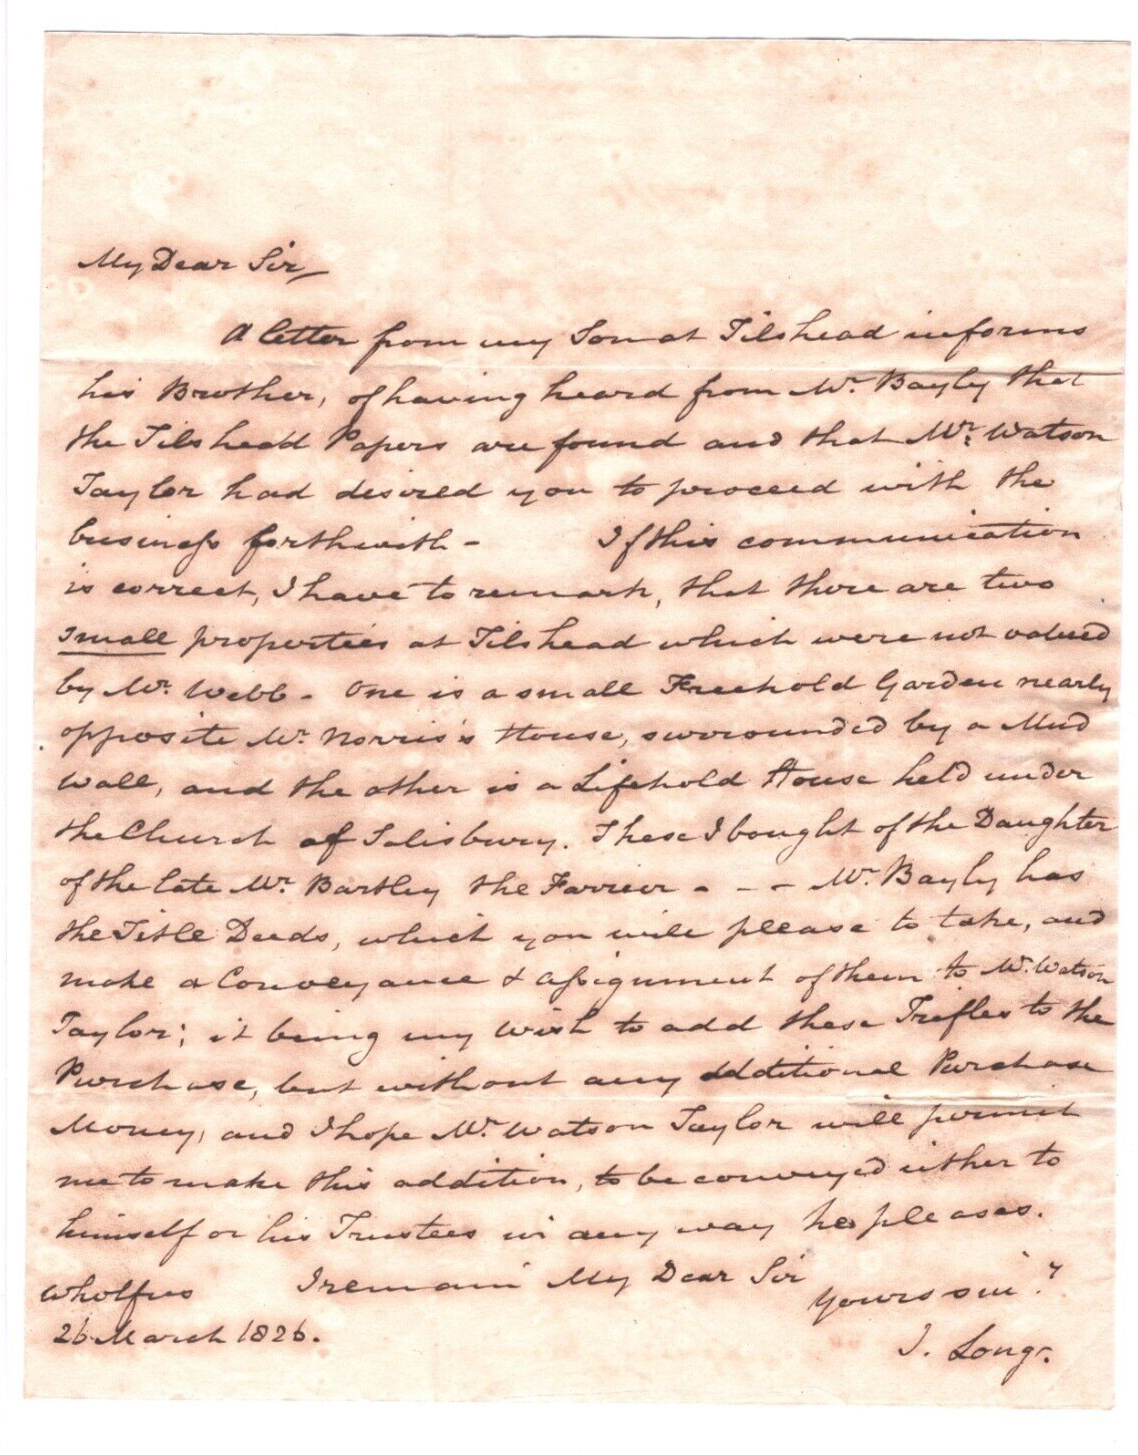 My Dear Sir,
A letter from my Son at Tilshead informs
his Brother, of having heard from Mr. Bayly that
the Tilshead Papers are found and that Mr. Watson
Taylor had desired you to proceed with the
business forthwith - If this communication
is correct, I have to remark, that there are two
small properties at Tilshead which were not valued
by Mr. Webb - One is a small Freehold Garden nearly
opposite Mr. Norris's House, surrounded by a Mud
Wall, and the other is a Lifehold House held under
the Church of Salisbury. These I bought of the Daughter
of the late Mr. Bartley the Farrier - - - Mr. Bayly has
the Title Deeds, which you will please to take, and
make a Conveyance & assignment of them to Mr. Watson
Taylor; it being my wish to add these Trifles to the
Purchase, but without any additional Purchase
Money, and I hope Mr. Watson Taylor will permit
me to make this addition, to be conveyed either to
himself or his Trustees in any way he pleases.
I remain My Dear Sir
Yours sin
26 March 1826.
J. Long.